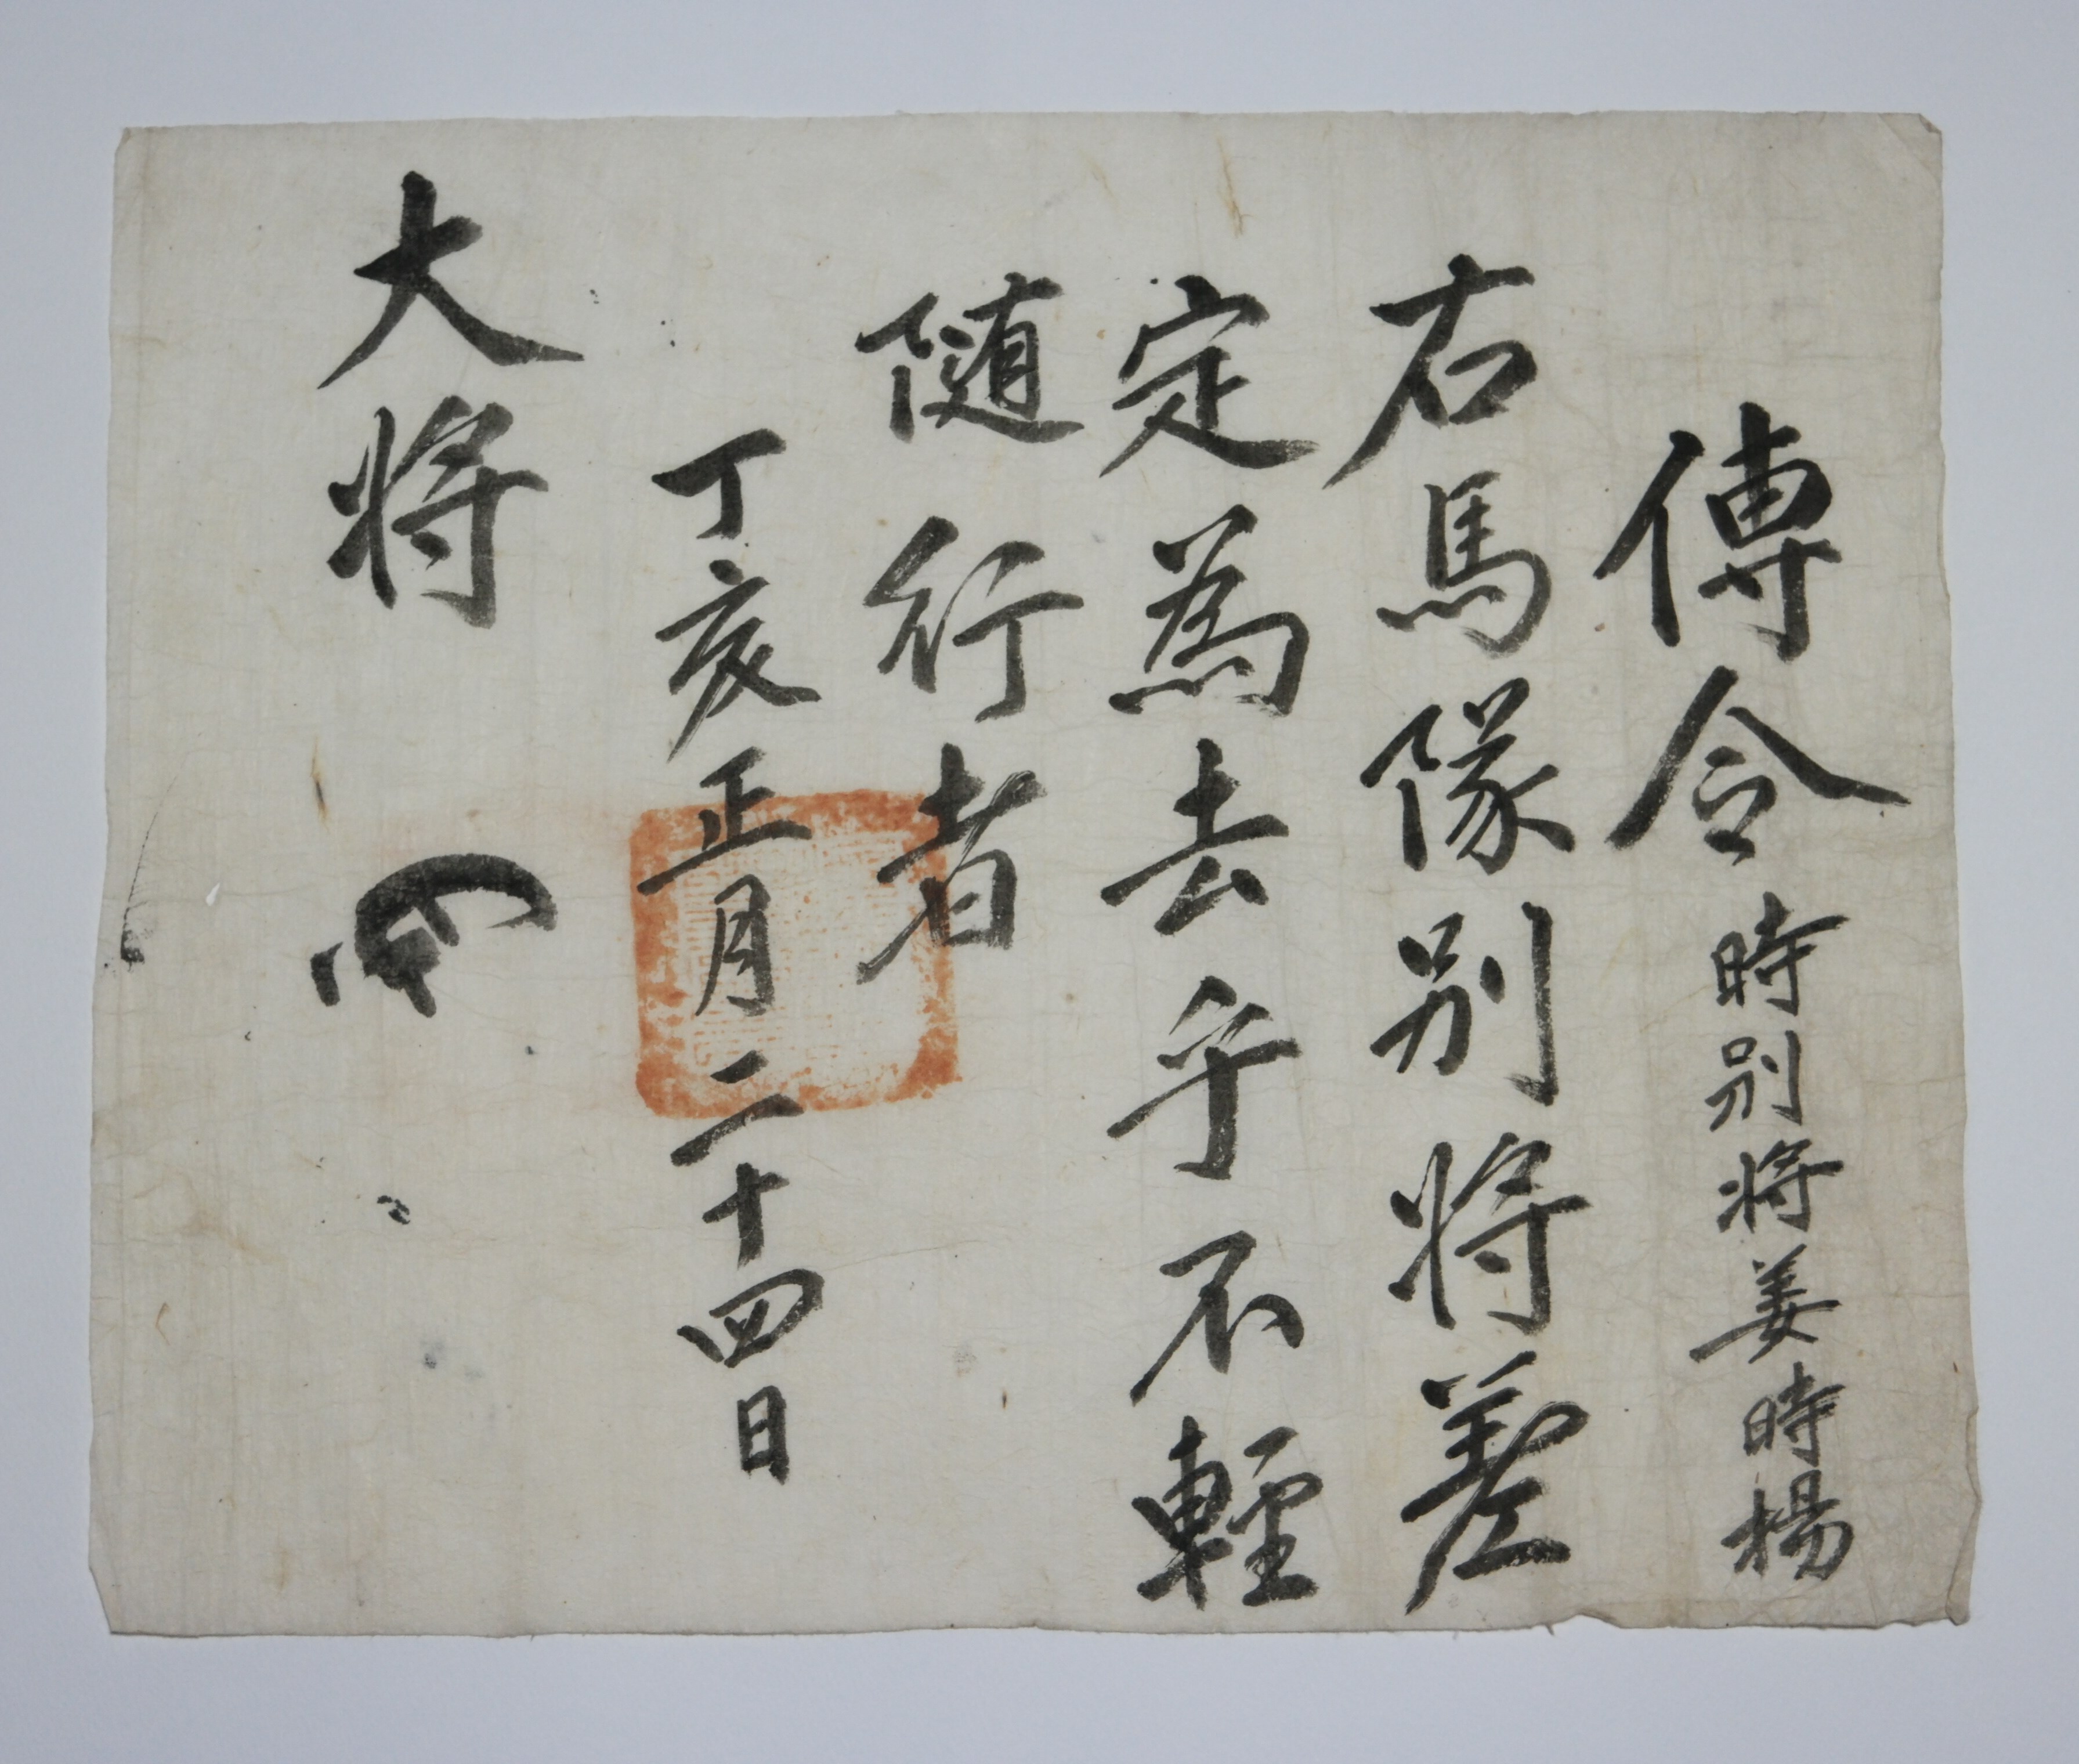 傳令 時別将姜時楊
右馬隊別将差
定為去乎不輕
随行者
丁亥正月二十四日
大将